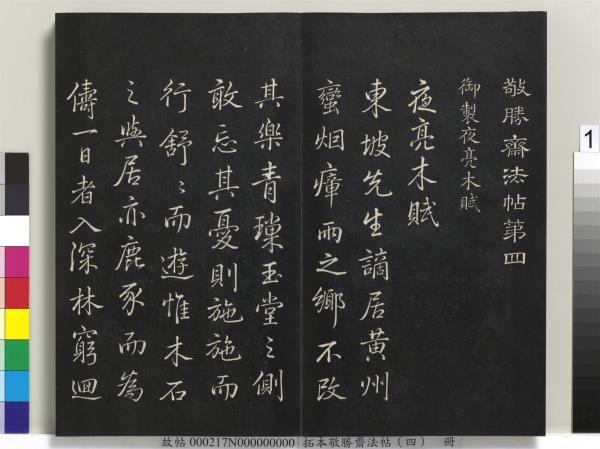 敬勝齋法帖第四
御製夜亮木賦
夜亮木賦
東坡先生謫居黃州
蠻烟瘴雨之鄉不改
其樂青瑣玉堂之側
敢忘其憂則施施而
行舒舒而遊惟木石
之與居亦鹿豕而為
儔一日者入深林窮迴
1
故帖 000217N000000000 拓本敬勝齋法帖（四） 冊